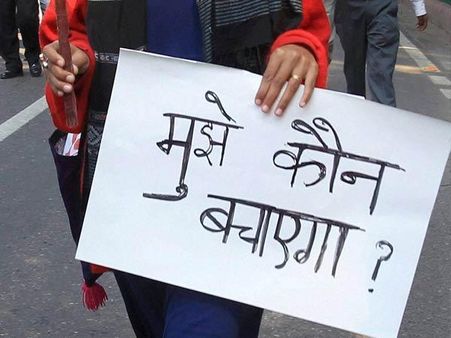 मुझे कौन
बचाएगा ?